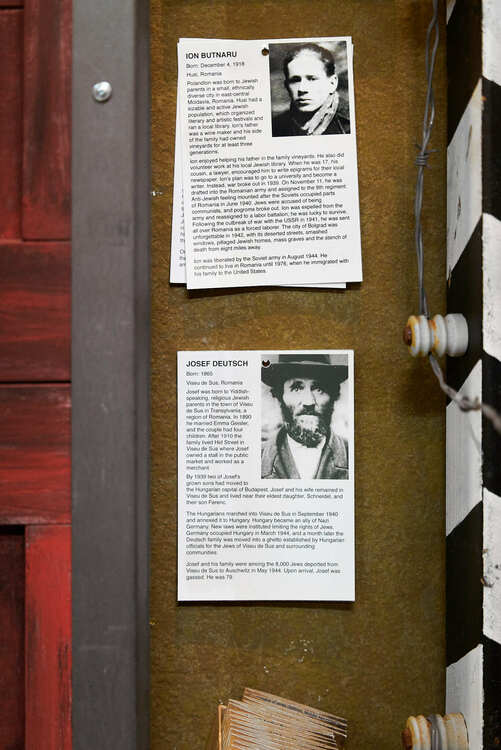 ION BUTNARU
Born: December 4, 1918
Husi, Romania
Polandion was born to Jewish
parents in a small, ethnically
diverse city in east-central
Moldavia, Romania. Husi had a
sizable and active Jewish
population, which organized
literary and artistic festivals and
ran a local library. Ion's father
was a wine maker and his side
of the family had owned
vineyards for at least three
generations.
Ion enjoyed helping his father in the family vineyards. He also did
volunteer work at his local Jewish library. When he was 17, his
cousin, a lawyer, encouraged him to write epigrams for their local
newspaper. Ion's plan was to go to a university and become a
writer. Instead, war broke out in 1939. On November 11, he was
drafted into the Romanian army and assigned to the 9th regiment.
Anti-Jewish feeling mounted after the Soviets occupied parts
of Romania in June 1940. Jews were accused of being
communists, and pogroms broke out. Ion was expelled from the
army and reassigned to a labor battalion; he was lucky to survive.
Following the outbreak of war with the USSR in 1941, he was sent
all over Romania as a forced laborer. The city of Bolgrad was
unforgettable in 1942, with its deserted streets, smashed
windows, pillaged Jewish homes, mass graves and the stench of
death from eight miles away.
Ion was liberated by the Soviet army in August 1944. He
continued to live in Romania until 1976, when he immigrated with
his family to the United States.
JOSEF DEUTSCH
Born: 1865
Viseu de Sus, Romania
Josef was born to Yiddish-
speaking, religious Jewish
parents in the town of Viseu
de Sus in Transylvania, a
region of Romania. In 1890
he married Emma Geisler,
and the couple had four
children. After 1910 the
family lived Hid Street in
Viseu de Sus where Josef
owned a stall in the public
market and worked as a
merchant.
By 1939 two of Josef's
grown sons had moved to
the Hungarian capital of Budapest. Josef and his wife remained in
Viseu de Sus and lived near their eldest daughter, Schneidel, and
their son Ferenc.
The Hungarians marched into Viseu de Sus in September 1940
and annexed it to Hungary. Hungary became an ally of Nazi
Germany. New laws were instituted limiting the rights of Jews.
Germany occupied Hungary in March 1944, and a month later the
Deutsch family was moved into a ghetto established by Hungarian
officials for the Jews of Viseu de Sus and surrounding
communities.
Josef and his family were among the 8,000 Jews deported from
Viseu de Sus to Auschwitz in May 1944. Upon arrival, Josef was
gassed. He was 79.